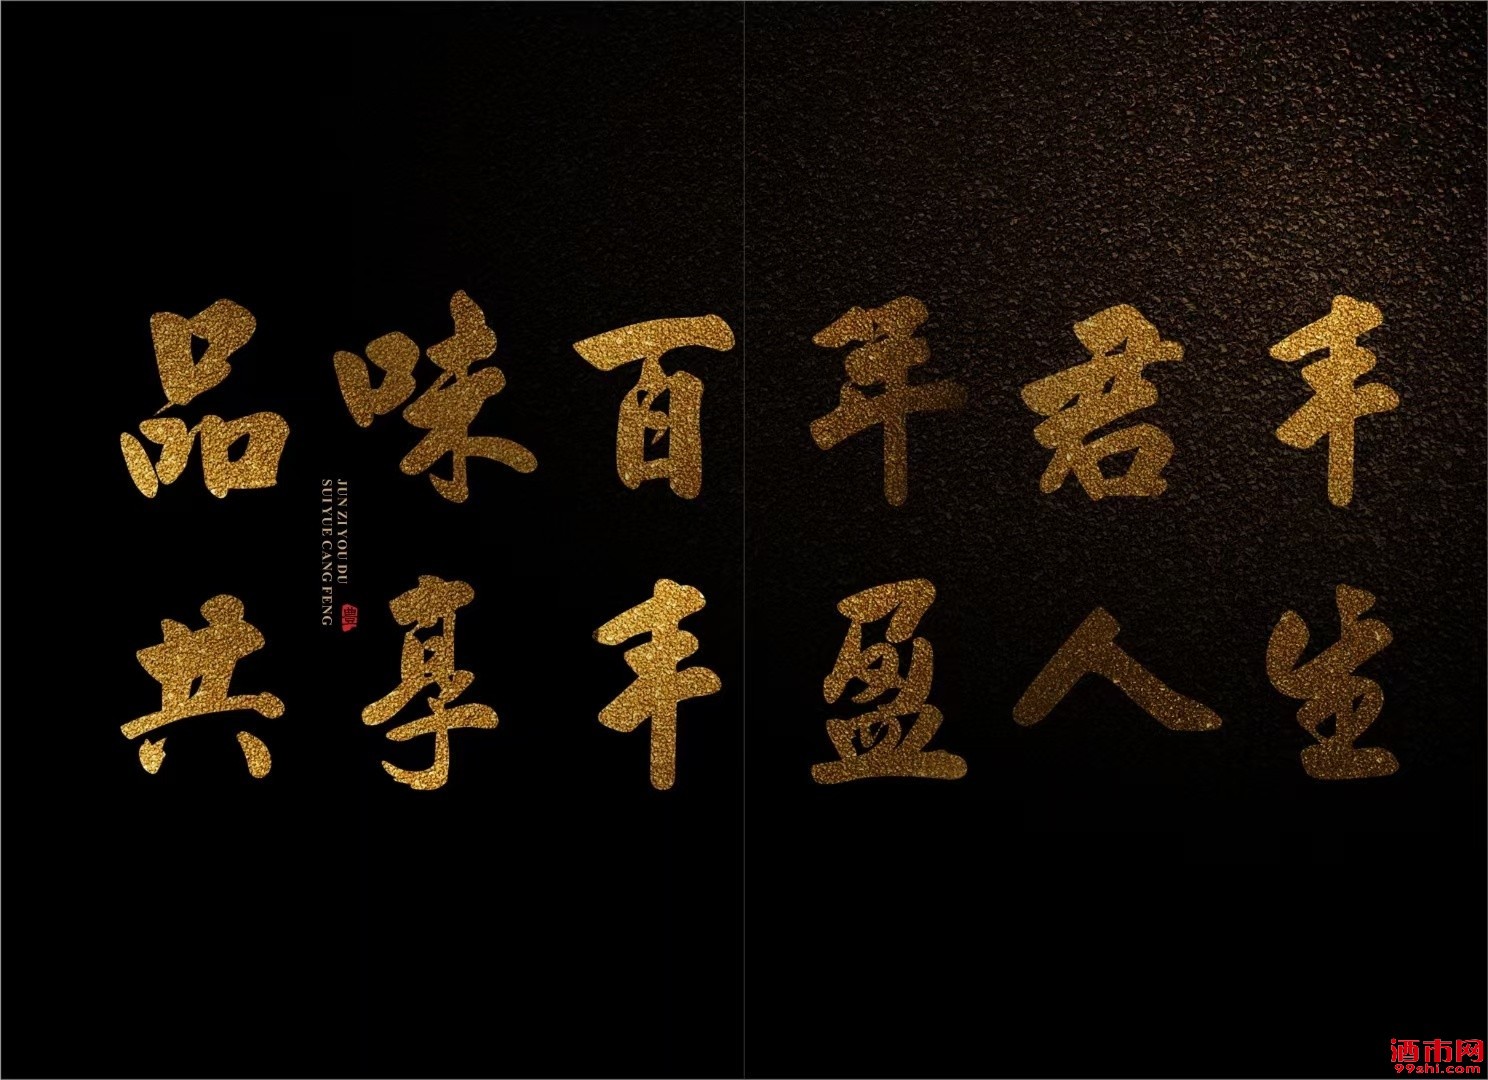 品味百年君丰
共享丰盈人生
JUN ZI YOU DU
SUI YUE CANG FENG
豊
酒市网
99shi.com